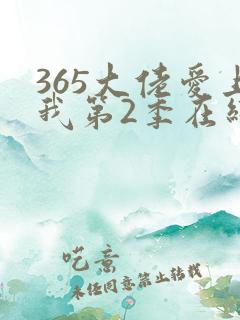 365大佬爱上
我第2季在线
呓意
未经同意禁止转载